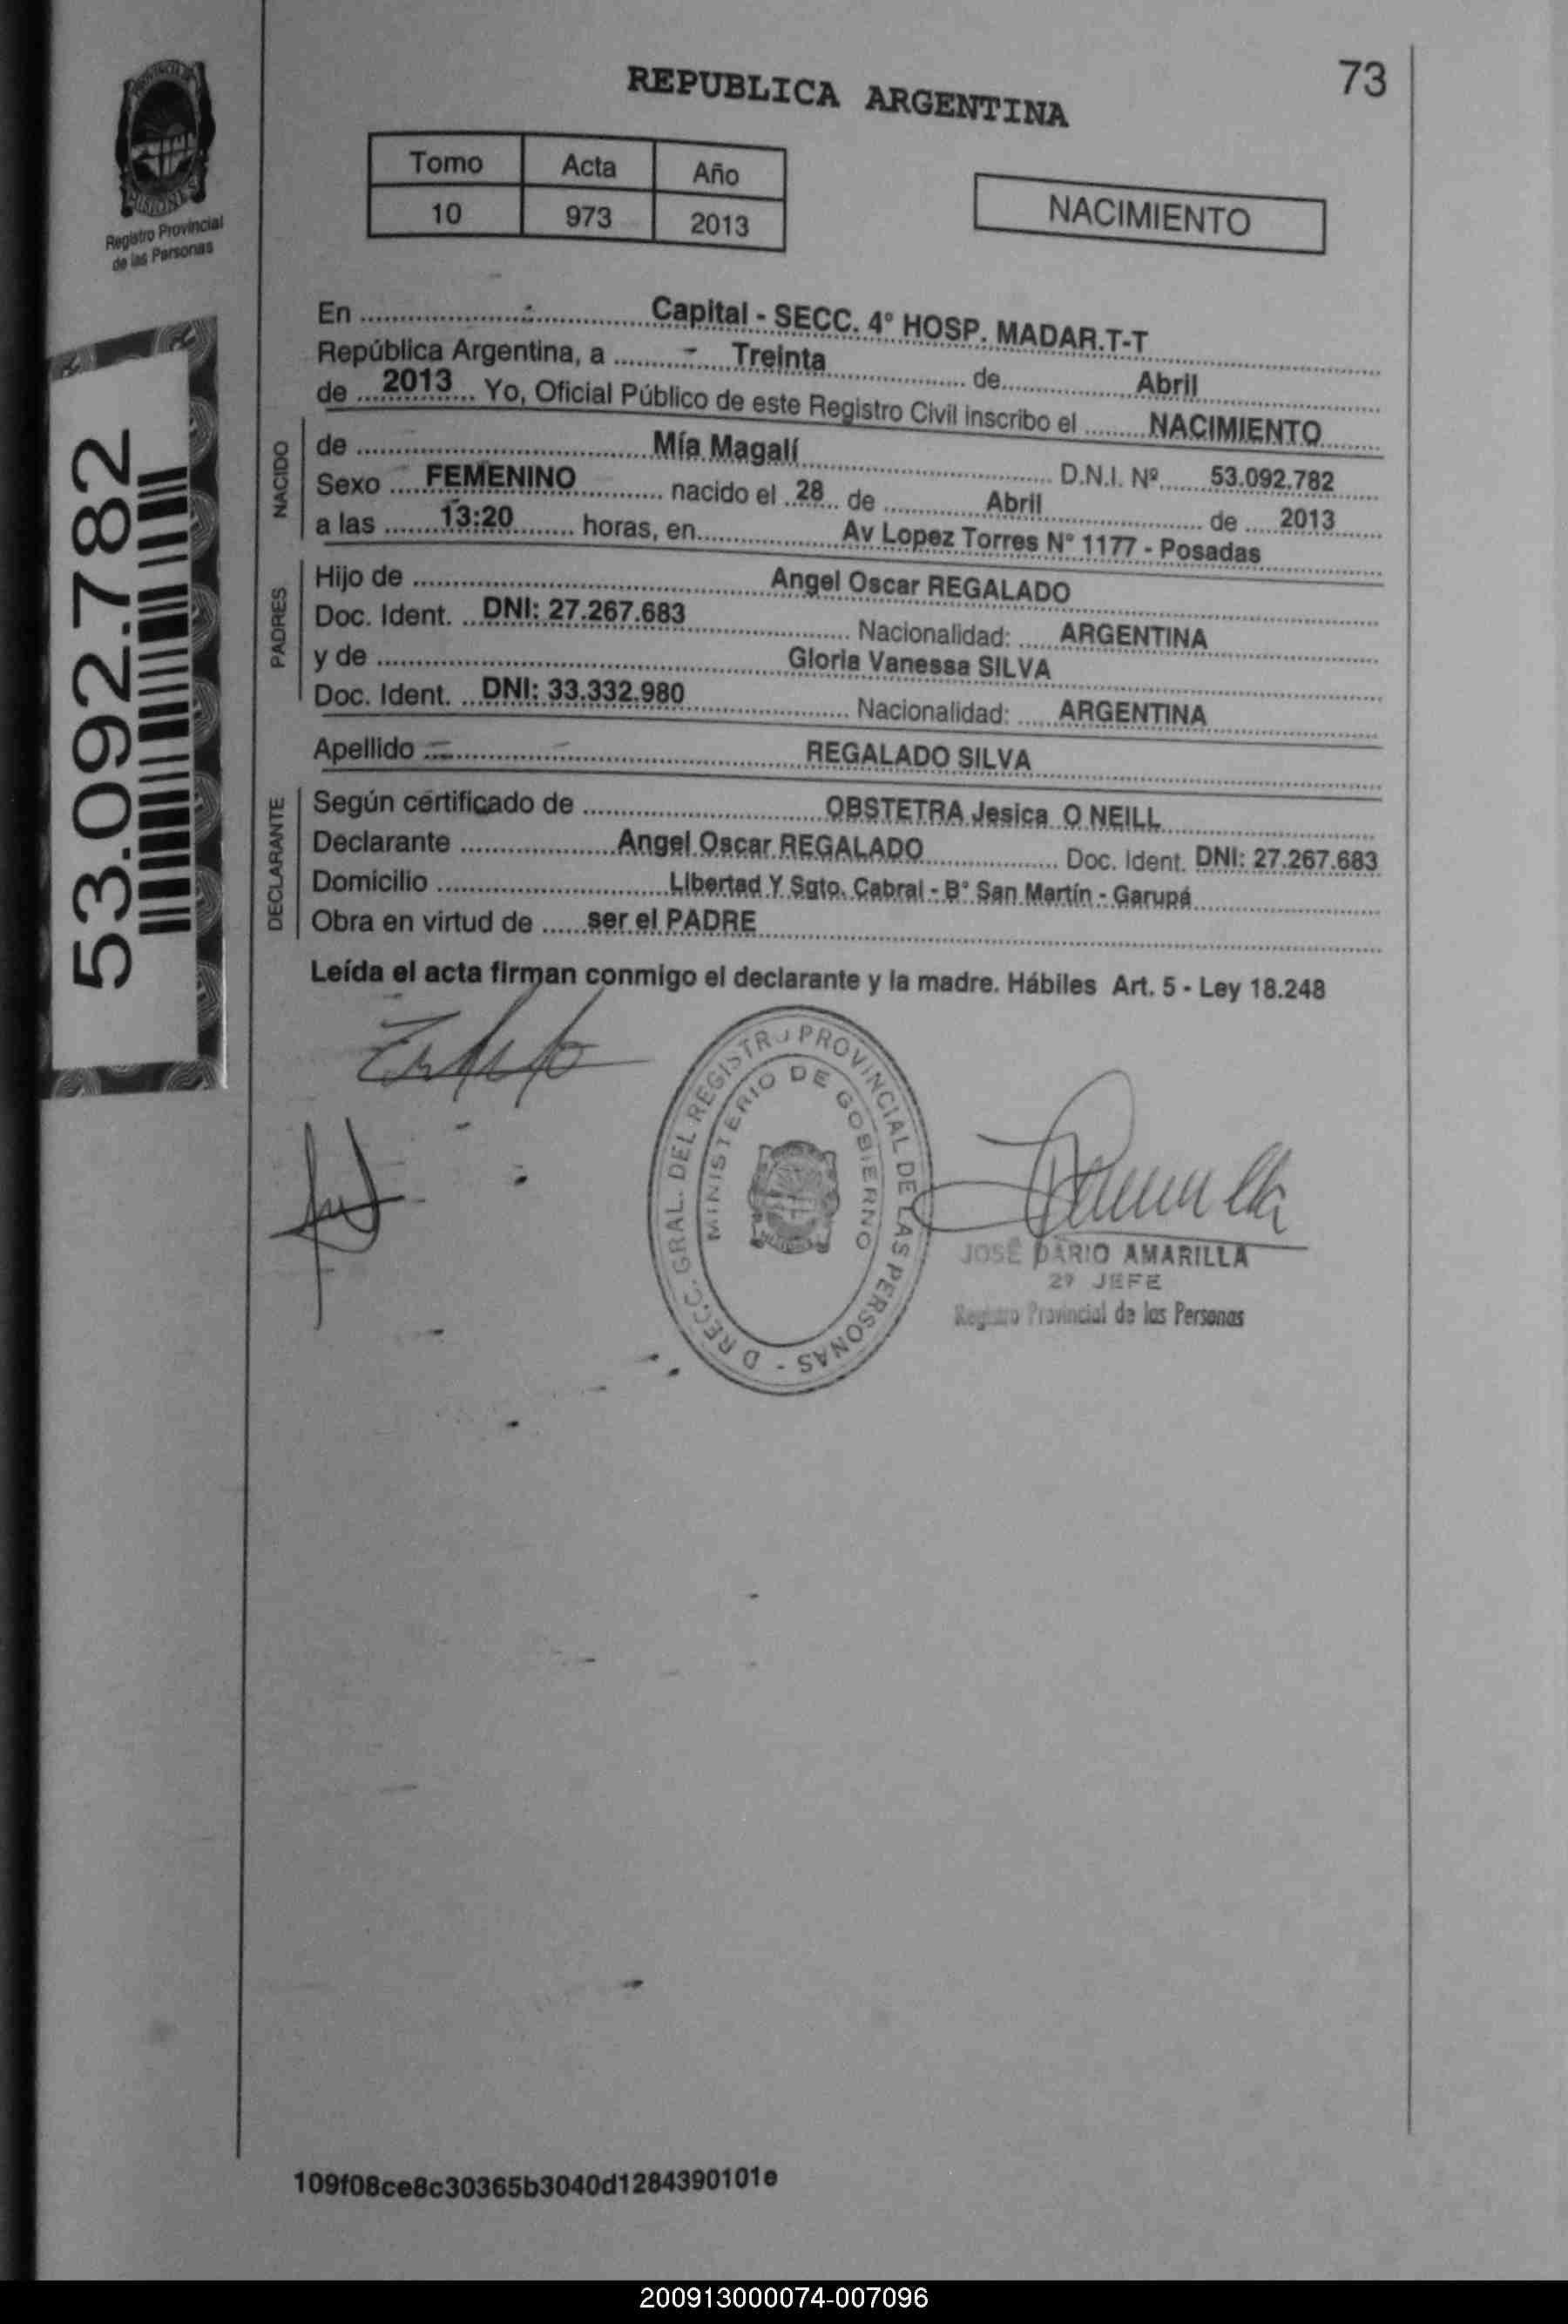 73
REPUBLICA ARGENTINA
PROVINCIA DE
MISIONES
Registro Provincial
de las Personas
Tomo Acta Año
10 973 2013
NACIMIENTO
53.092.782
En Capital - SECC. 4° HOSP. MADAR.T-T
República Argentina, a Treinta de Abril
de 2013 Yo, Oficial Público de este Registro Civil inscribo el NACIMIENTO
NACIDO
de Mía Magalí D.N.I. Nº 53.092.782
Sexo FEMENINO nacido el 28 de Abril de 2013
a las 13:20 horas, en Av Lopez Torres N° 1177 - Posadas
PADRES
Hijo de Angel Oscar REGALADO
Doc. Ident. DNI: 27.267.683 Nacionalidad: ARGENTINA
y de Gloria Vanessa SILVA
Doc. Ident. DNI: 33.332.980 Nacionalidad: ARGENTINA
Apellido REGALADO SILVA
DECLARANTE
Según certificado de OBSTETRA Jesica O NEILL
Declarante Angel Oscar REGALADO Doc. Ident. DNI: 27.267.683
Domicilio Libertad Y Sgto. Cabral - B° San Martín - Garupá
Obra en virtud de ser el PADRE
Leída el acta firman conmigo el declarante y la madre. Hábiles Art. 5 - Ley 18.248
D RECC. GRAL. DEL REGISTRO PROVINCIAL DE LAS PERSONAS -
MINISTERIO DE GOBIERNO
JOSÉ DARIO AMARILLA
2º JEFE
Registro Provincial de las Personas
109f08ce8c30365b3040d1284390101e
200913000074-007096